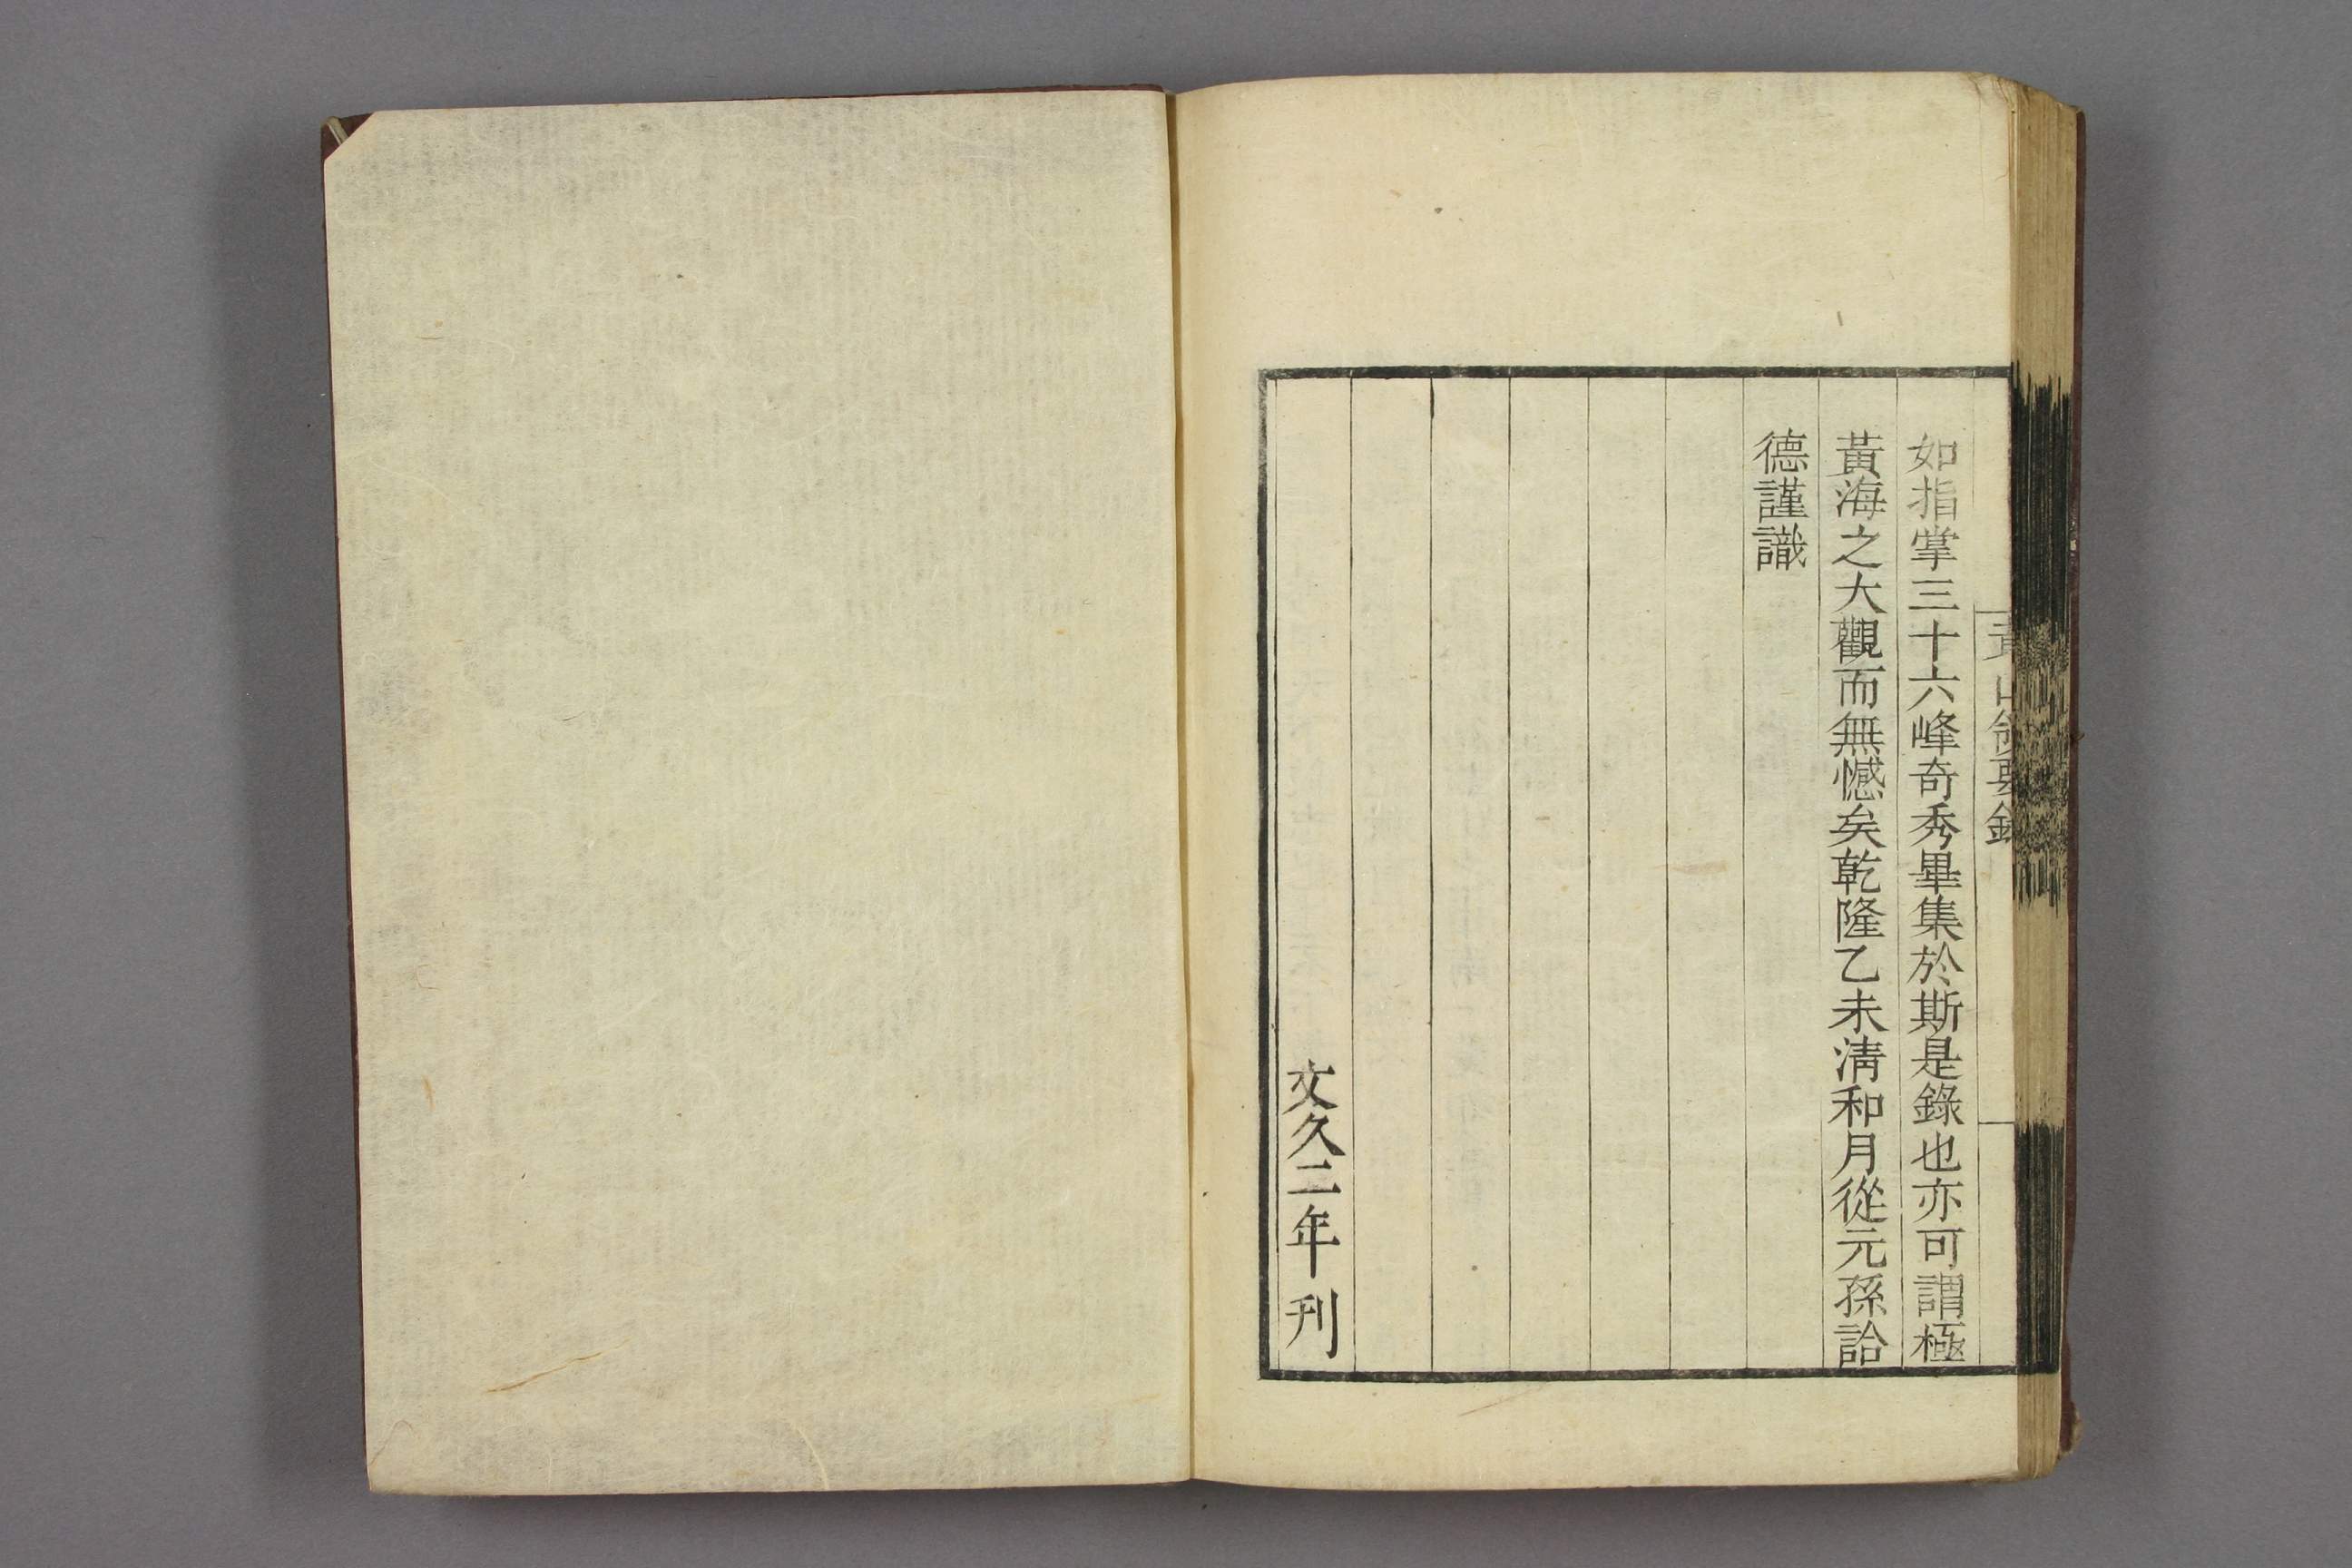 黃山領要錄
如指掌三十六峰奇秀畢集於斯是錄也亦可謂極
黃海之大觀而無憾矣乾隆乙未淸和月從元孫詥
德謹識
文久二年刊